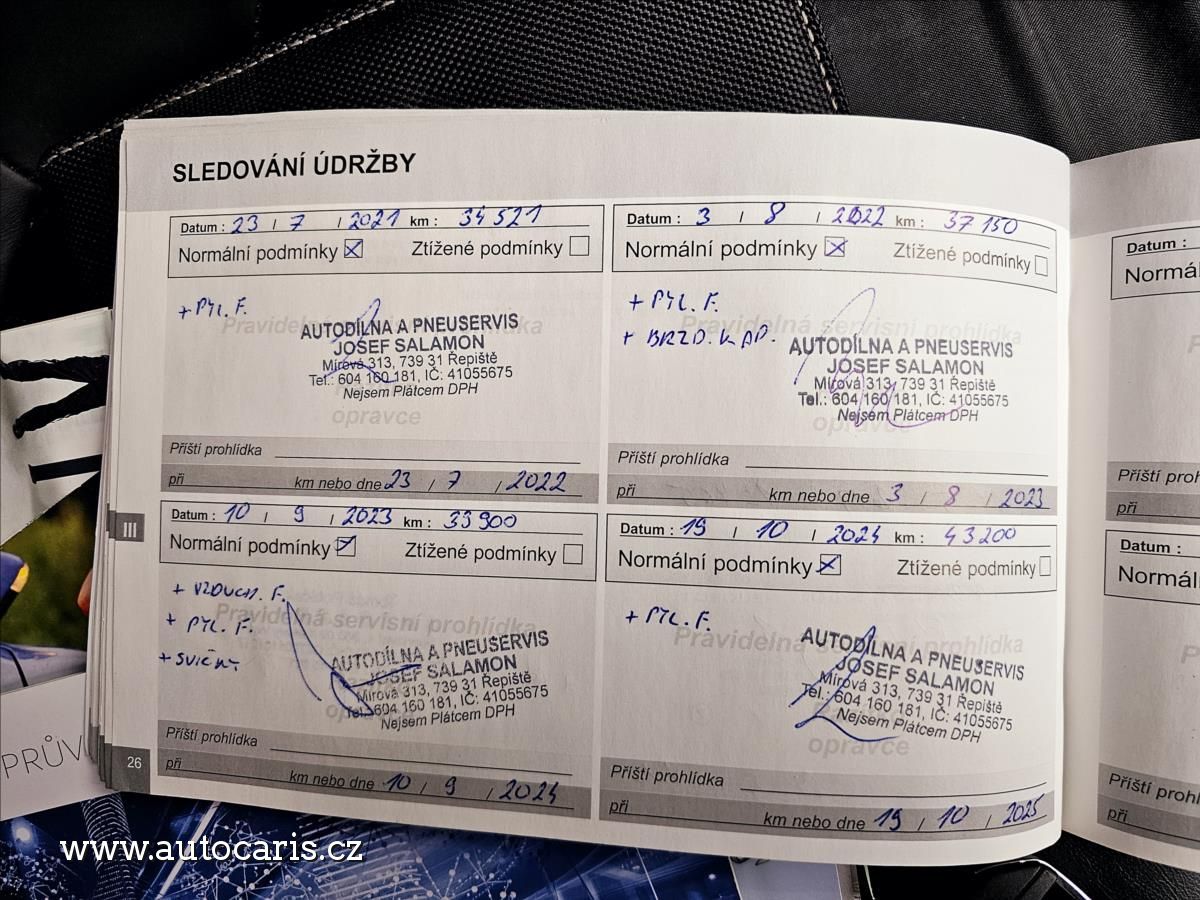 SLEDOVÁNÍ ÚDRŽBY
Datum : 23 / 7 / 2021 km : 34 521
Normální podmínky Ztížené podmínky
+ PYL. F.
Pravidelná servisní prohlídka
AUTODÍLNA A PNEUSERVIS
JOSEF SALAMON
Mírová 313, 739 31 Řepiště
Tel.: 604 160 181, IČ: 41055675
Nejsem Plátcem DPH
opravce
Příští prohlídka
při km nebo dne 23 / 7 / 2022
Datum : 3 / 8 / 2022 km : 37 150
Normální podmínky Ztížené podmínky
+ PYL. F.
+ BRZD. KAP.
Pravidelná servisní prohlídka
AUTODÍLNA A PNEUSERVIS
JOSEF SALAMON
Mírová 313, 739 31 Řepiště
Tel.: 604 160 181, IČ: 41055675
Nejsem Plátcem DPH
opravce
Příští prohlídka
při km nebo dne 3 / 8 / 2023
III
Datum : 10 / 9 / 2023 km : 33 900
Normální podmínky Ztížené podmínky
+ VZDUCH. F.
+ PYL. F.
+ SVÍČKY
Pravidelná servisní prohlídka
AUTODÍLNA A PNEUSERVIS
JOSEF SALAMON
Mírová 313, 739 31 Řepiště
Tel.: 604 160 181, IČ: 41055675
Nejsem Plátcem DPH
Příští prohlídka
při km nebo dne 10 / 9 / 2024
Datum : 19 / 10 / 2024 km : 43 200
Normální podmínky Ztížené podmínky
+ PYL. F.
Pravidelná servisní prohlídka
AUTODÍLNA A PNEUSERVIS
JOSEF SALAMON
Mírová 313, 739 31 Řepiště
Tel.: 604 160 181, IČ: 41055675
Nejsem Plátcem DPH
opravce
Příští prohlídka
při km nebo dne 19 / 10 / 2025
26
Datum :
Normál
Příští proh
při
Datum :
Normál
Příští prohl
při
PRŮV
www.autocaris.cz